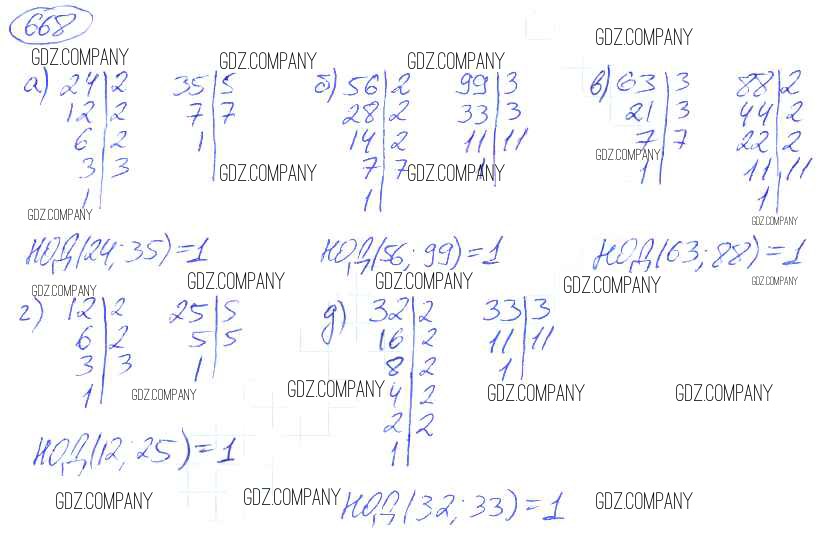 668
GDZ.COMPANY GDZ.COMPANY GDZ.COMPANY GDZ.COMPANY
а) 24|2 35|5 б) 56|2 99|3 в) 63|3 88|2
12|2 7|7 28|2 33|3 21|3 44|2
6|2 1| 14|2 11|11 7|7 22|2
3|3 7|7 1| 1| 11|11
1| 1| 1|
GDZ.COMPANY GDZ.COMPANY GDZ.COMPANY
GDZ.COMPANY GDZ.COMPANY
НОД(24; 35)=1 НОД(56; 99)=1 НОД(63; 88)=1
GDZ.COMPANY GDZ.COMPANY GDZ.COMPANY GDZ.COMPANY GDZ.COMPANY
г) 12|2 25|5 д) 32|2 33|3
6|2 5|5 16|2 11|11
3|3 1| 8|2 1|
1| 4|2
2|2
1|
GDZ.COMPANY GDZ.COMPANY GDZ.COMPANY GDZ.COMPANY
НОД(12; 25)=1
GDZ.COMPANY GDZ.COMPANY GDZ.COMPANY
НОД(32; 33)=1